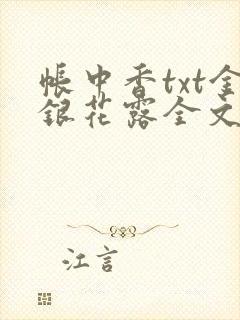 帐中香txt金
银花露全文
江言